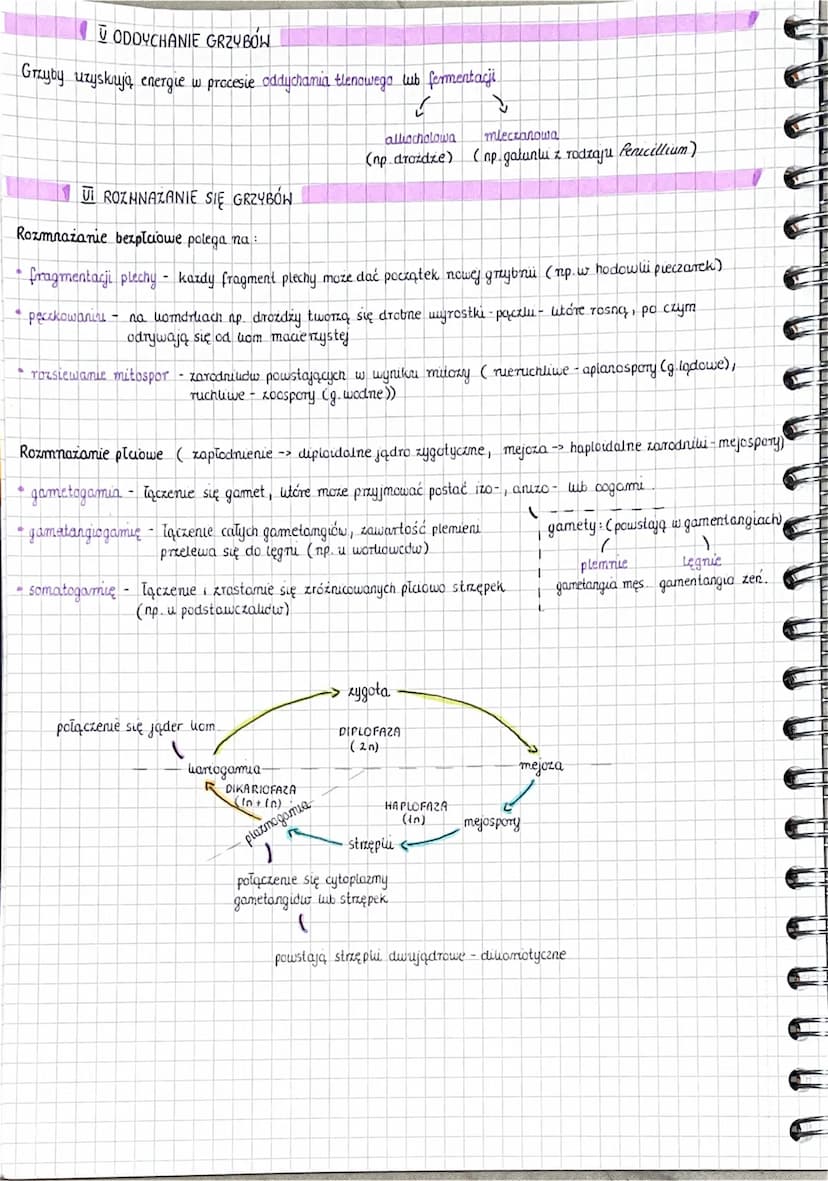 V ODDYCHANIE GRZYBÓW
Grzyby uzyskują energie w procesie oddychania tlenowego lub fermentacji
alkocholowa mleczanowa
(np. drożdże) (np. gatunki z rodzaju Penicillium)
VI ROZMNAŻANIE SIĘ GRZYBÓW
Rozmnażanie bezpłciowe polega na:
* fragmentacji plechy - każdy fragment plechy może dać początek nowej grzybni (np. w hodowli pieczarek)
* pączkowaniu - na komórkach np. drożdży tworzą się drobne wyrostki - pączki - które rosną, po czym
odrywają się od kom macierzystej
* rozsiewanie mitospor - zarodników powstających w wyniku mitozy (nieruchliwe - aplanospory (g. lądowe),
ruchliwe - zoospory (g. wodne))
Rozmnażanie płciowe (zapłodnienie -> diploidalne jądro zygotyczne, mejoza -> haploidalne zarodniki - mejospory)
* gametogamia - łączenie się gamet, które może przyjmować postać izo-, anizo- lub oogamii.
* gamatangiogamię - łączenie całych gametangiów, zawartość plemni
przelewa się do lęgni (np. u workowców)
gamety: (powstają w gamentangiach)
plemnie lęgnie
gametangia męs. gamentangia żeń.
* somatogamię - łączenie i zrastanie się zróżnicowanych płciowo strzępek
(np. u podstawczaków)
zygota
połączenie się jąder kom.
DIPLOFAZA
(2n)
kariogamia
mejoza
DIKARIOFAZA
(1n + 1n)
HAPLOFAZA
(1n)
plazmogamia
mejospory
strzępki
połączenie się cytoplazmy
gametangiów lub strzępek
powstają strzępki dwujądrowe - dikariotyczne